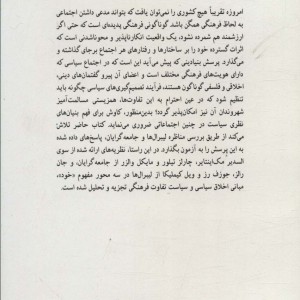 امروزه تقریباً هیچ کشوری را نمی‌توان یافت که بتواند مدعی داشتن اجتماعی
به لحاظ فرهنگی همگن باشد. گوناگونی فرهنگی پدیده‌ای است که حتی اگر
ارزشمند هم شمرده نشود، یک واقعیت انکارناپذیر و محوناشدنی است که
اثرات گسترده خود را بر ساختارها و رفتارهای هر اجتماع برجای‌گذاشته و
می‌گذارد. پرسش بنیادینی که پیش می‌آید این است که در اجتماع سیاسی که
دارای هویت‌های فرهنگی مختلف است و اعضای آن پیرو گفتمان‌های دینی،
اخلاقی و فلسفی گوناگون هستند، فرآیند تصمیم‌گیری‌های سیاسی چگونه باید
تنظیم شود که در عین احترام به این تفاوت‌ها، همزیستی مسالمت‌آمیز
شهروندان آن نیز امکان‌پذیر گردد؟ بدین‌منظور، کاوش برای فهم بنیان‌های
نظری سیاست در چنین اجتماعاتی ضروری می‌نماید. کتاب حاضر تلاش
می‌کند از طریق بررسی مناظره لیبرال‌ها و جامعه‌گرایان، پاسخ‌های داده شده
به این پرسش را به آزمون بگذارد. در این راستا، نظریه‌های ارائه شده از سوی
السدیر مک‌اینتایر، چارلز تیلور و مایکل والزر از جامعه‌گرایان، و جان
رالز، جوزف رز و ویل کیملیکا از لیبرال‌ها در سه محور مفهوم «خود»،
مبانی اخلاق سیاسی و سیاست تفاوت فرهنگی تجزیه و تحلیل شده است.